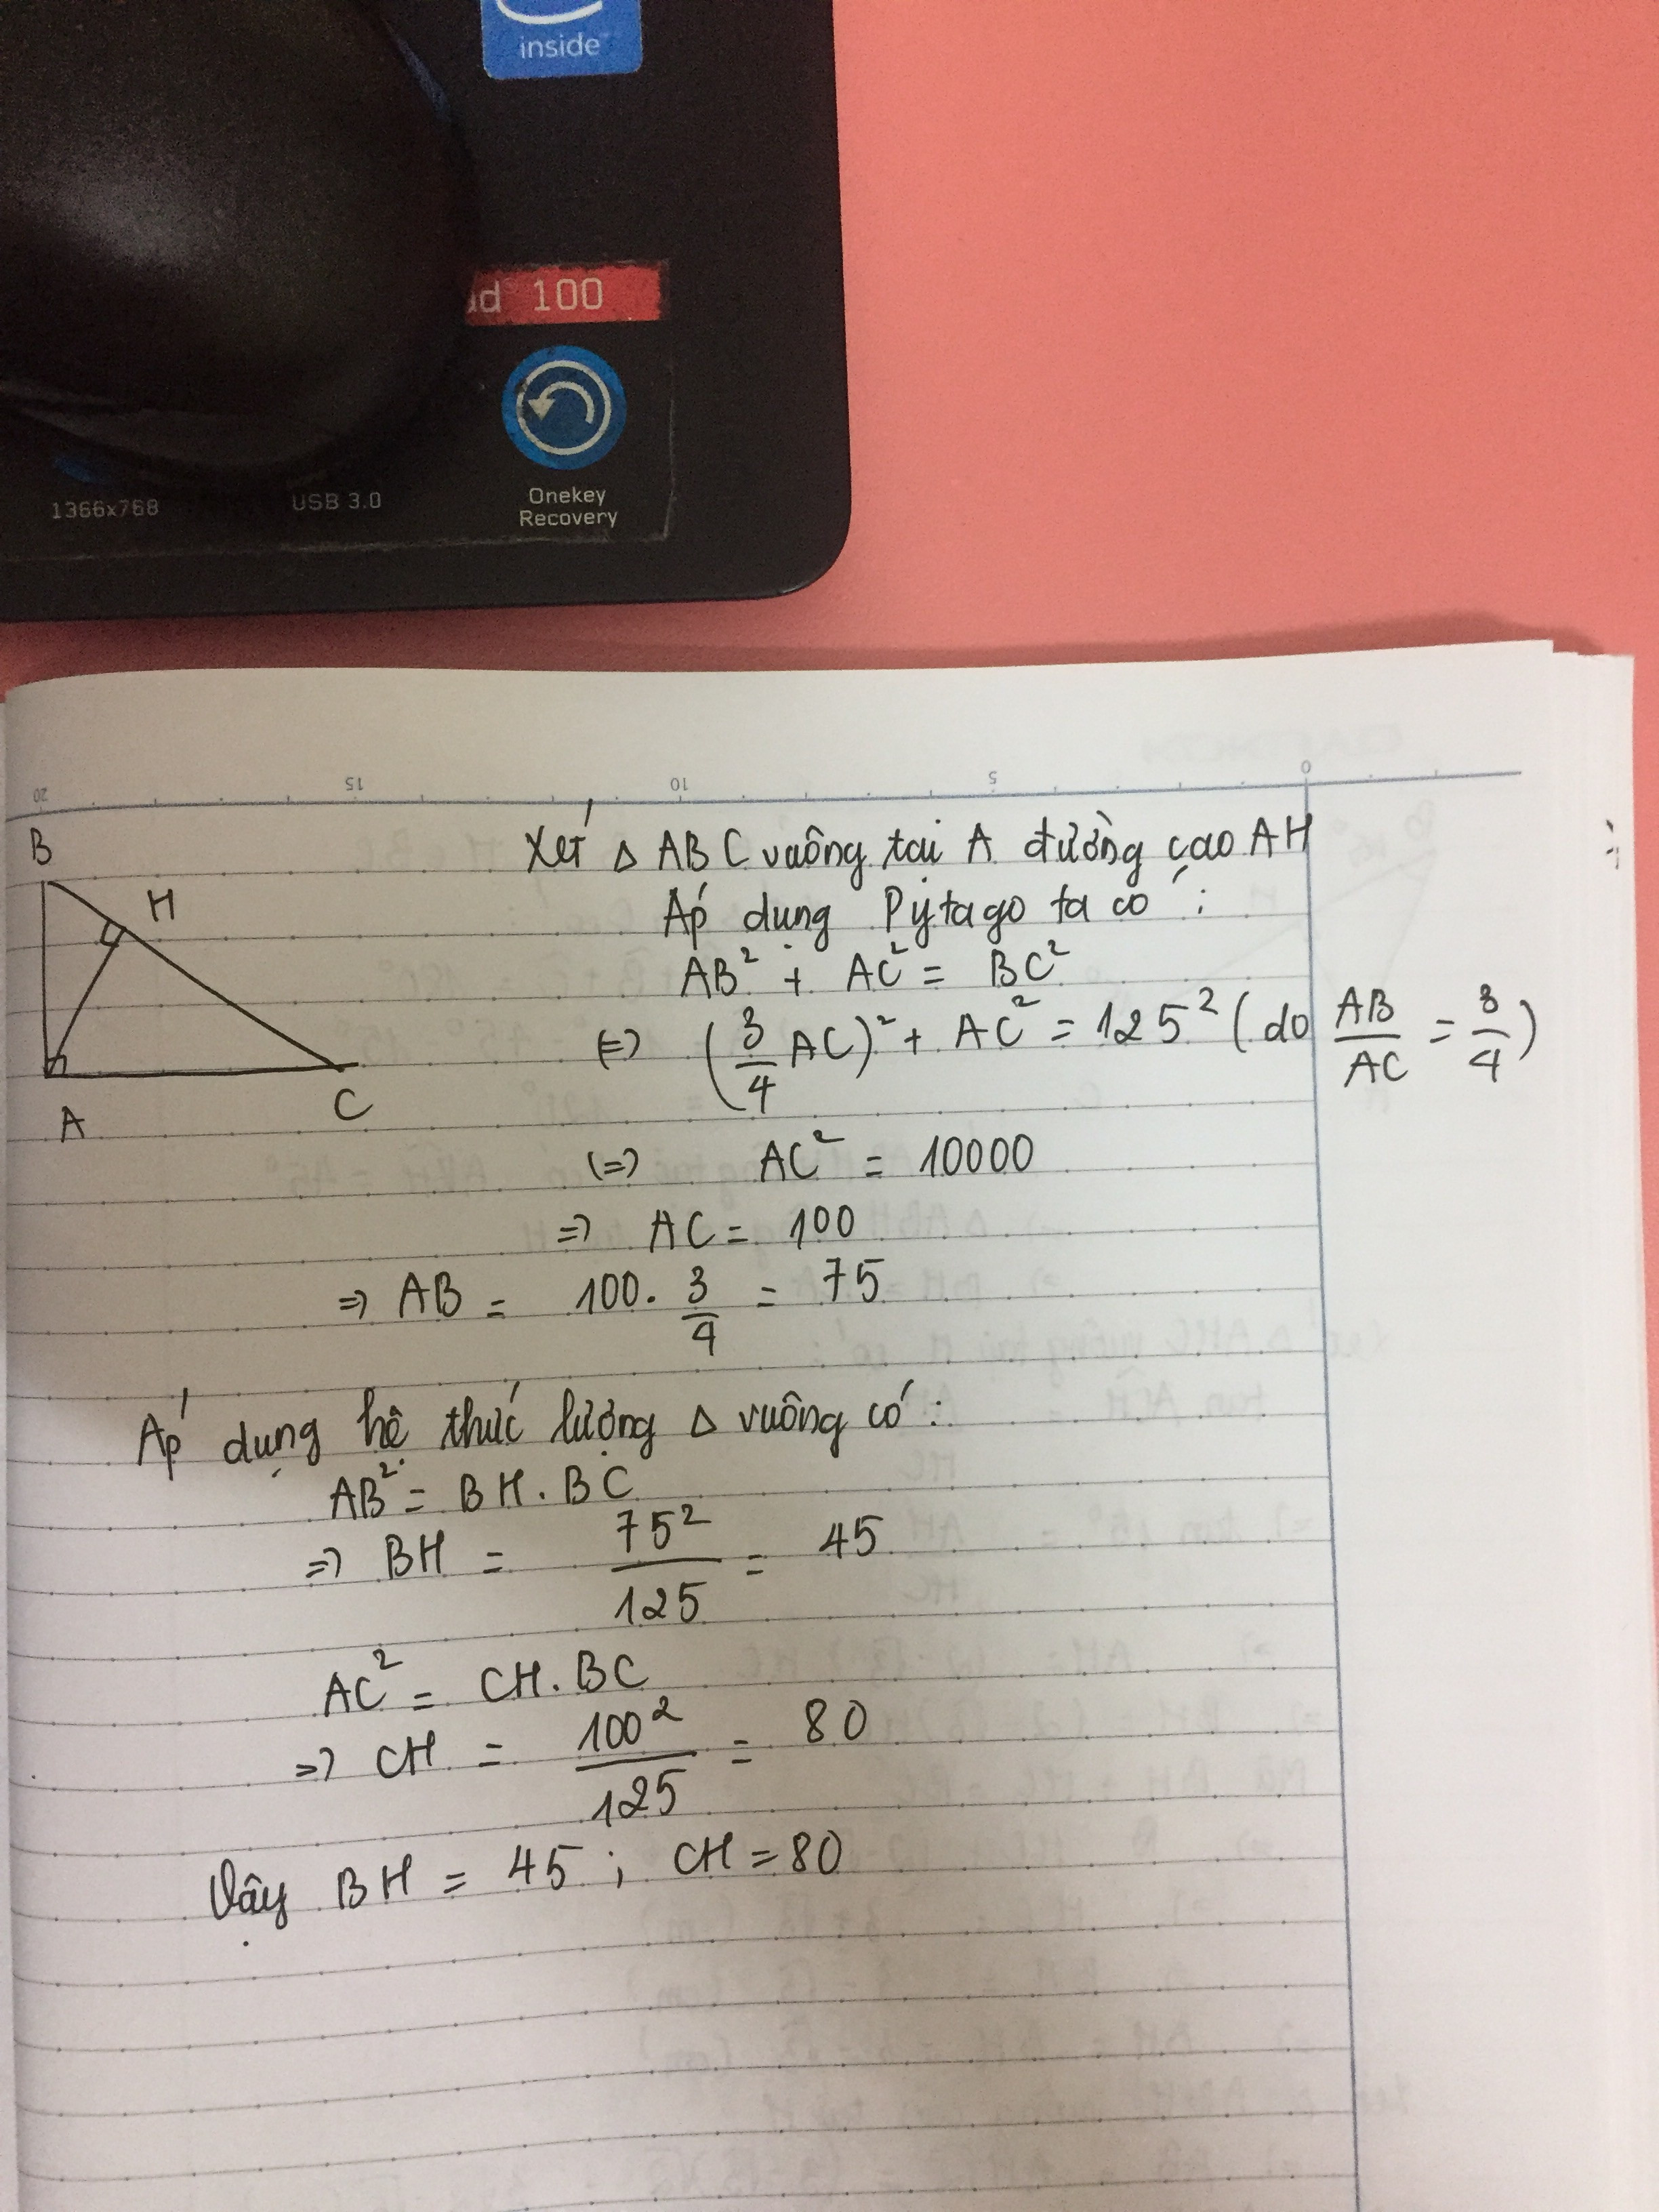 inside
ad 100
1366x768 USB 3.0 Onekey
Recovery
20 15 10 5 0
B
H
A
C
Xét Δ ABC vuông tại A đường cao AH
Áp dụng Pytago ta có :
AB² + AC² = BC²
(=) (3/4 AC)² + AC² = 125² (do AB/AC = 3/4)
(=) AC² = 10000
=) AC = 100
=) AB = 100. 3/4 = 75
Áp dụng hệ thức lượng Δ vuông có :
AB² = BH . BC
=) BH = 75²/125 = 45
AC² = CH . BC
=) CH = 100²/125 = 80
Vậy BH = 45 ; CH = 80